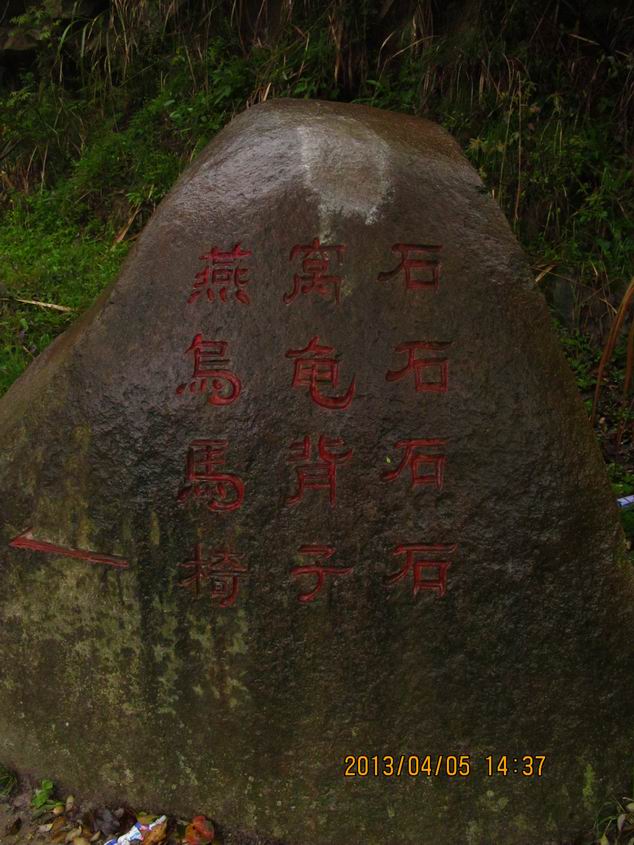 燕窝石
烏龟石
馬背石
椅子石
2013/04/05 14:37